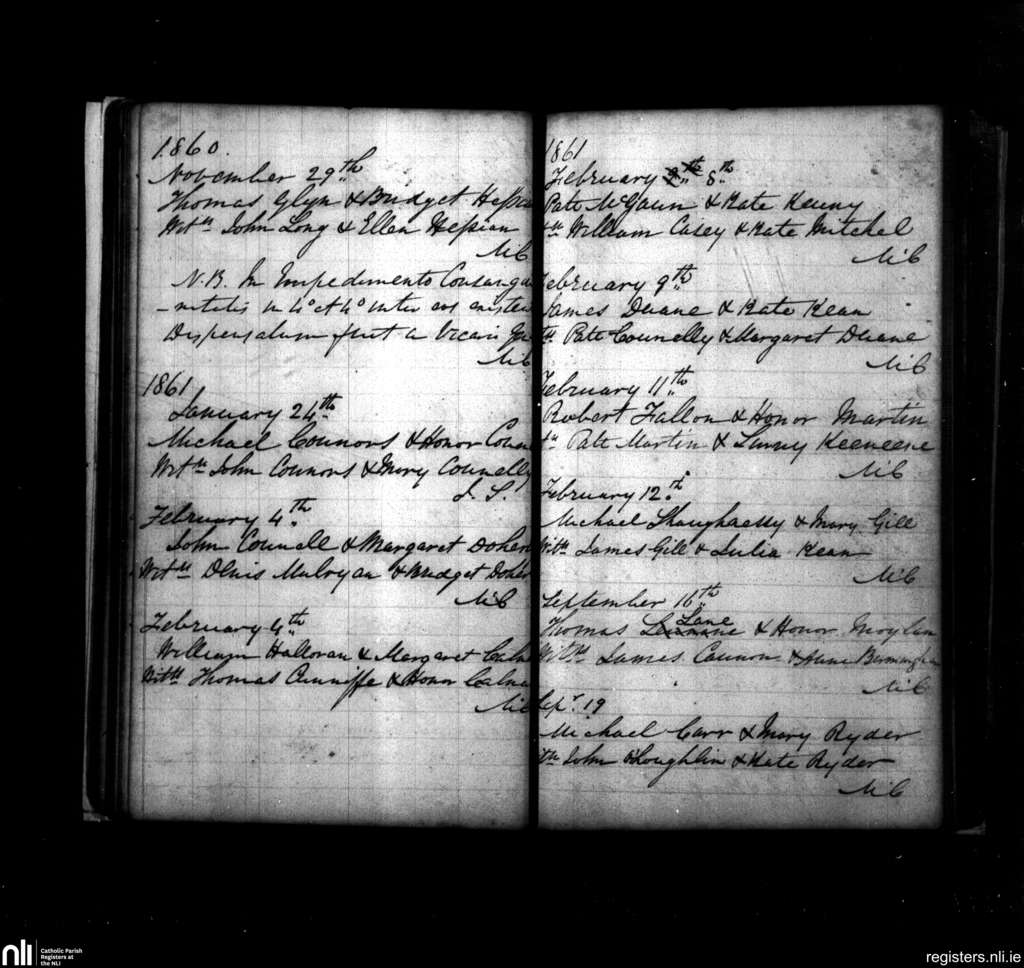 1860.
November 29th
Thomas Glyn & Bridget Hessi
Witss John Long & Ellen Hessian
MC
N.B. In Impedimento Consangui
-nitatis in 4° et 4° inter eos existen
Dispensatum fuit a Vicari Ge
MC
1861
January 24th
Michael Connors & Honor Conn
Witss John Connors & Mary Connelly
J. S.
February 4th
John Connell & Margaret Doher
Witss Denis Mulryan & Bridget Doher
MC
February 4th
William Halloran & Margaret Calna
Witss Thomas Cunniffe & Honor Calna
MC
1861
February 8th
Patt McGaun & Kate Kenny
tss William Casey & Kate Mitchel
MC
February 9th
James Duane & Kate Kean
tss Patt Connelly & Margaret Duane
MC
February 11th
Robert Fallon & Honor Martin
ts Patt Martin & Keeneene
MC
February 12th
Michael Shaughnessy & Mary Gill
Witss James Gill & Julia Kean
MC
September 16th
Thomas Lane & Honor Moylan
Witss James Cannon & Anne Bermingham
MC
Sepr. 19
Michael Carr & Mary Ryder
tss John O'Loughlin & Kate Ryder
MC
nli
Catholic Parish
Registers at
the NLI
registers.nli.ie